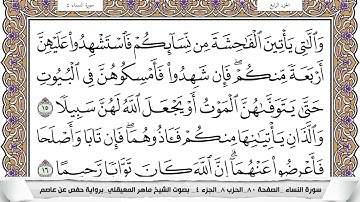 الجزء الرابع
سورة النساء ٤
وَالَّٰتِي يَأْتِينَ الْفَٰحِشَةَ مِن نِّسَآئِكُمْ فَاسْتَشْهِدُوا۟ عَلَيْهِنَّ
أَرْبَعَةً مِّنكُمْ ۖ فَإِن شَهِدُوا۟ فَأَمْسِكُوهُنَّ فِي الْبُيُوتِ
حَتَّىٰ يَتَوَفَّىٰهُنَّ الْمَوْتُ أَوْ يَجْعَلَ اللَّهُ لَهُنَّ سَبِيلًا ١٥
وَالَّذَانِ يَأْتِيَٰنِهَا مِنكُمْ فَـَٔاذُوهُمَا ۖ فَإِن تَابَا وَأَصْلَحَا
فَأَعْرِضُوا۟ عَنْهُمَآ ۗ إِنَّ اللَّهَ كَانَ تَوَّابًا رَّحِيمًا ١٦
سورة النساء _الصفحة ٨٠_الحزب ٨_الجزء ٤_ بصوت الشيخ ماهر المعيقلي برواية حفص عن عاصم